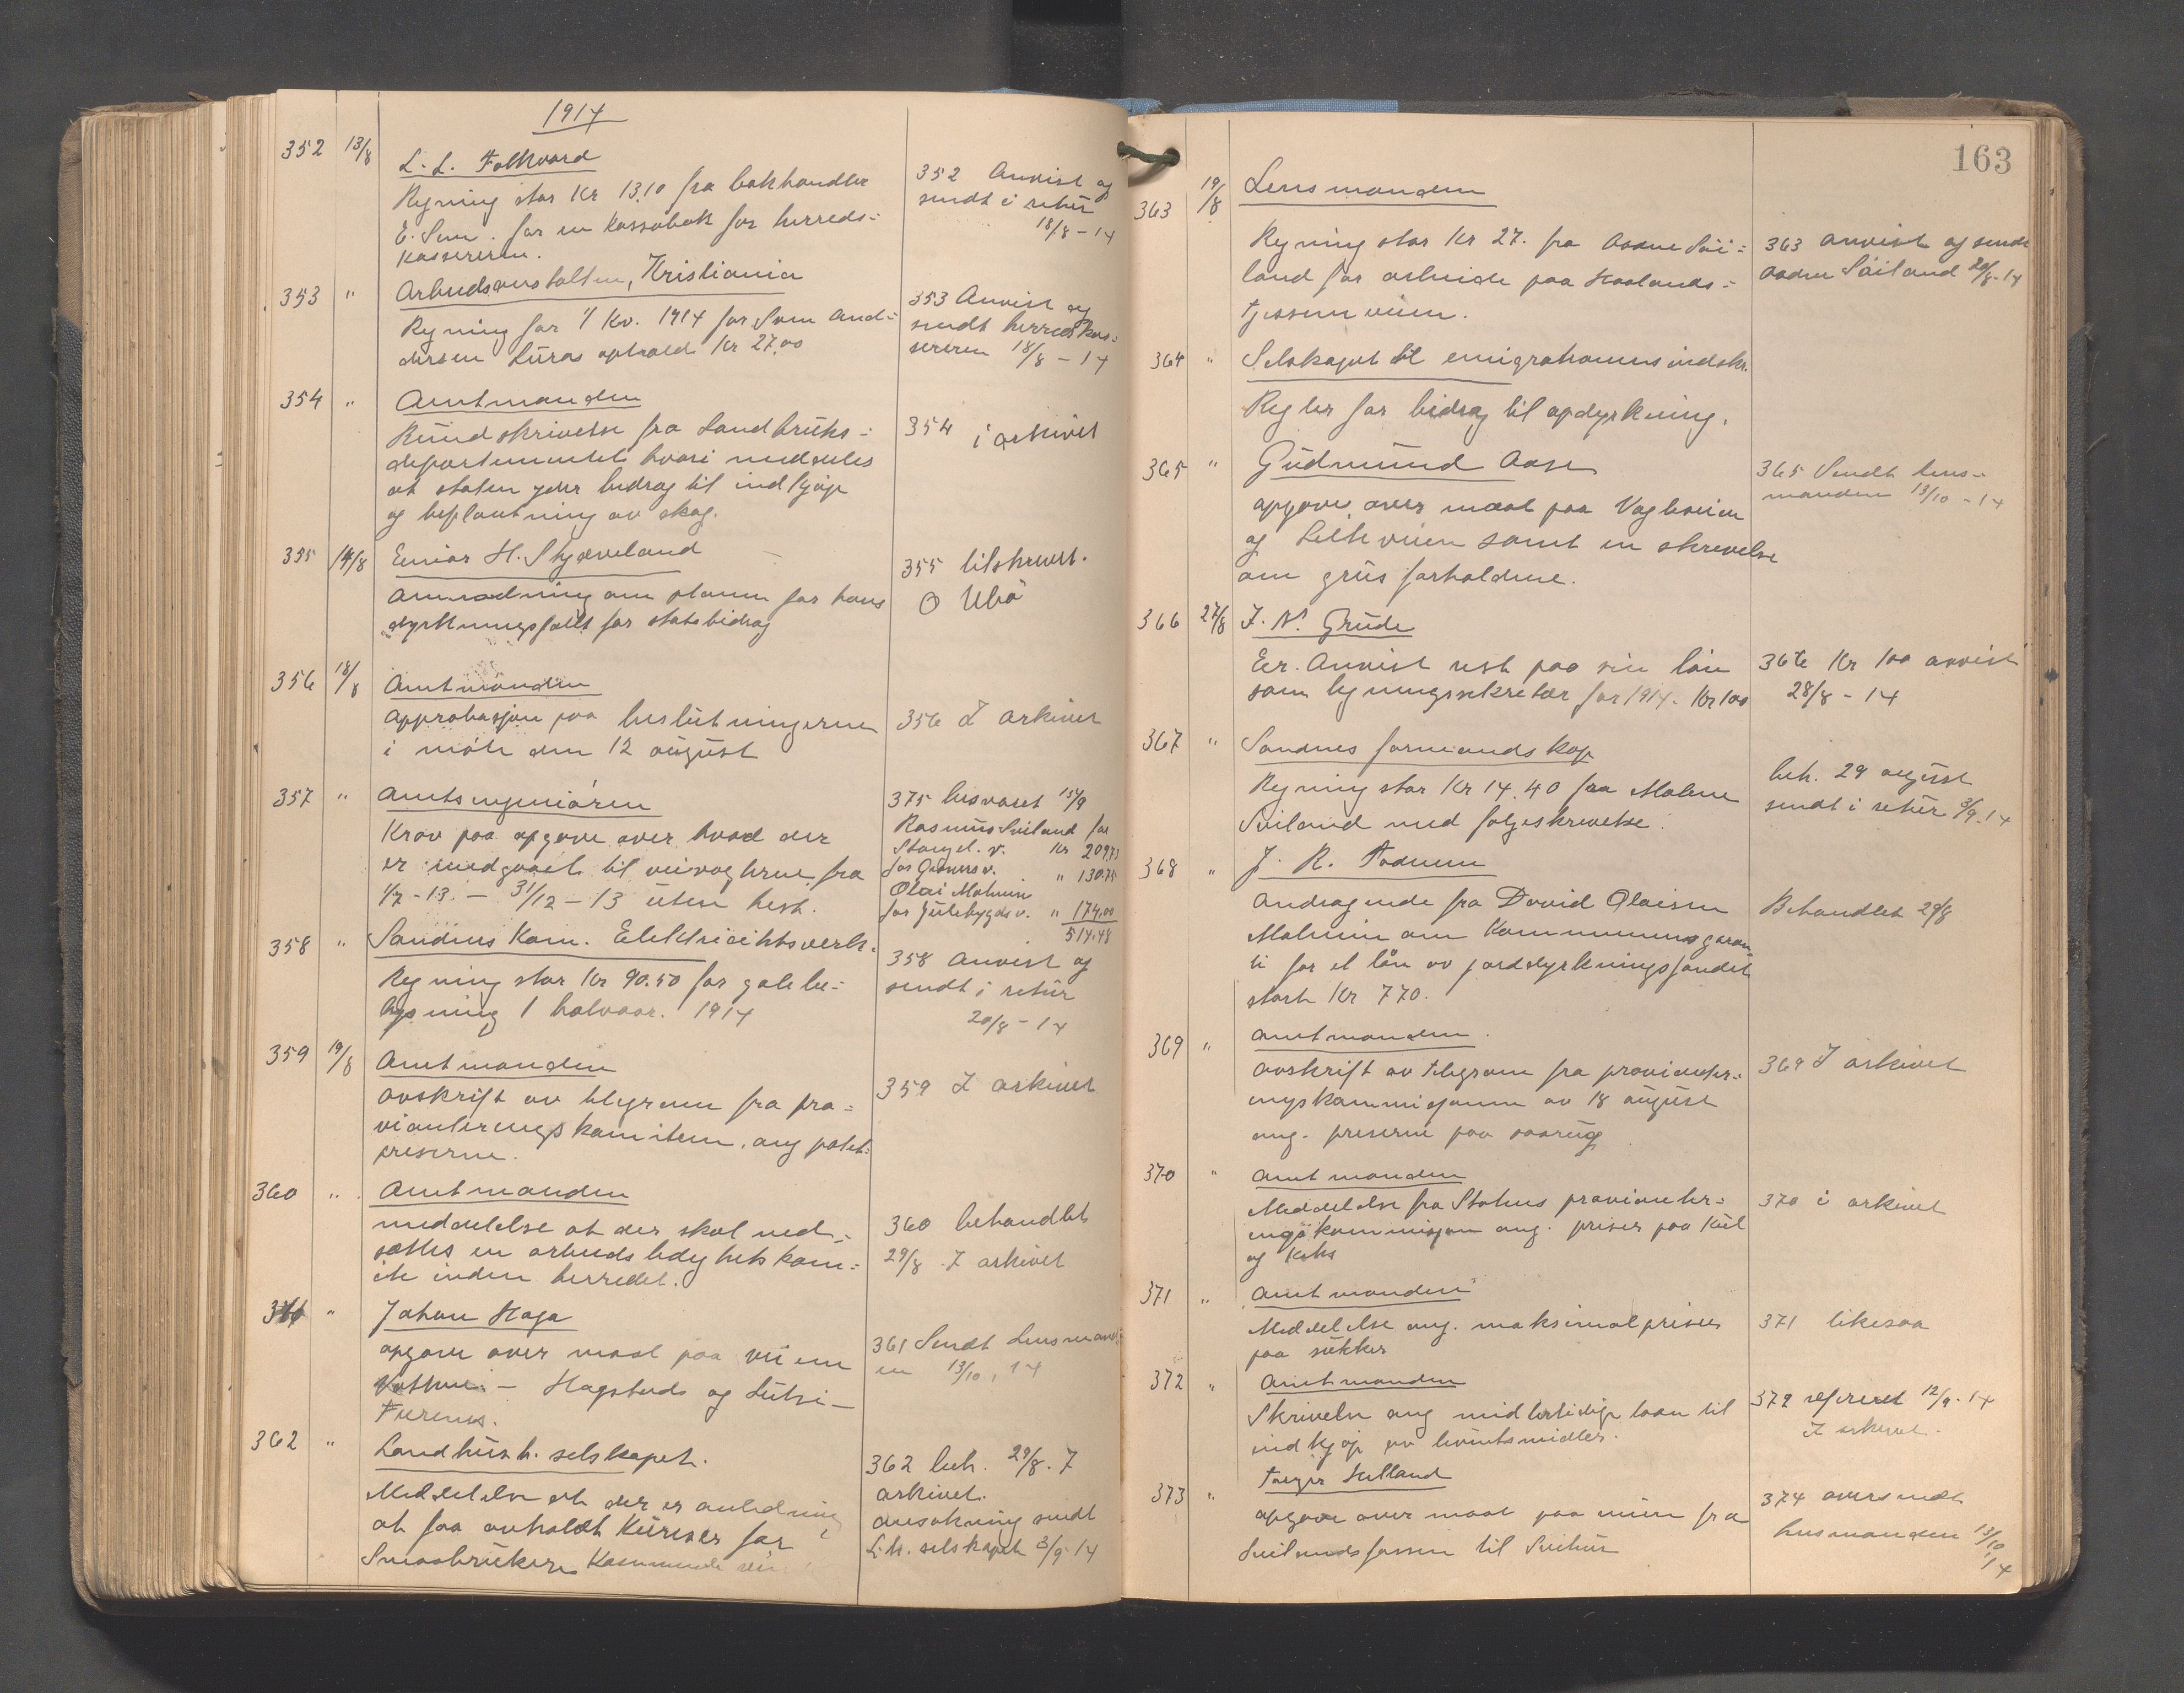 1914
352 13/8 L. L. Folkvord
Regning stor Kr 13.10 fra bokhandler
E. Sem. for en Kassabok for herreds-
kassereren.
352 Anvist og
sendt i retur
18/8 - 14
353 " Arbeidsanstalten, Kristiania
Regning for 1/ Kv. 1914 for Sven And-
dersen Luras ophold Kr 27.00
353 Anvist og
sendt herredskas-
sereren 18/8 - 14
354 " Amtmanden
Rundskrivelse fra Landbruks-
departementet hvori meddeles
at staten yder bidrag til indkjøp
og beplantning av skog.
354 i arkivet
355 14/8 Einar H. Skjæveland
Anmodning om planen for hans
dyrkningsfelt for statsbidrag
355 tilskrevet.
O Ueo
356 18/8 Amtmanden
Approbasjon paa beslutningerne
i møte den 12 august
356 I arkivet
357 " Amtsingeniøren
Krav paa opgave over hvad der
er medgaaet til veivogterne fra
1/7 - 13. - 31/12 - 13 uten hest.
375 besvaret 15/9
Rasmus Sviland for
Stangel. v. Kr 209.73
for Gramsv. " 130.75
Olai Malmin
for Julebygdv. " 174.00
514.48
358 " Sandnes Kom. Elektricitetsverk.
Regning stor Kr 90.50 for gatebe-
lysning 1 halvaar. 1914
358 Anvist og
sendt i retur
20/8 - 14
359 19/8 Amtmanden
Avskrift av telegram fra pro-
vianteringskomiteen. ang potet-
priserne.
359 I arkivet
360 " Amtmanden
meddelelse at der skal ned-
sættes en arbeidsledighetskom-
ite inden herredet.
360 behandlet
29/8. I arkivet
361 " Johan Haga
opgave over maal paa veiene
Vatne - Hogstads og Lutsi-
Furenes.
361 Sendt Lensmand-
en 13/10, 14
362 " Landhush. selskapet.
Meddelelse at der er anledning
at faa avholdt Kurser for
Smaabrukere
362 beh. 29/8. I
arkivet.
Ansøkning sendt
L. h. selskapet 3/9 - 14
163
363 19/8 Lensmanden
Regning stor Kr 27. fra Aadne Svi-
land for arbeide paa Hoolands-
tjessem veien.
363 Anvist og sendt
Aadne Sviland 20/8 - 14
364 " Selskapet til emigrationens indskr.
Regler for bidrag til opdyrkning.
365 " Gudmund Aase
opgave over maal paa Vagleveien
og Leiteveien samt en skrivelse
om grusforholdene.
365 Sendt lens-
manden 13/10 - 14
366 27/8 J. N. Grude
Er. Anvist rest paa sin løn
som ligningssekretær for 1914. Kr 100
366 Kr 100 anvist
28/8 - 14
367 " Sandnes formandskap
Regning stor Kr 14.40 fra Malene
Sviland med følgeskrivelse.
beh. 29 august
sendt i retur 3/9. 14
368 " J. R. Foduum
Andragende fra David Olaisen
Malmin om Kommunens garan-
ti for et lån av jorddyrkningsfondet
stort Kr 770.
Behandlet 29/8
369 " Amtmanden.
Avskrift av telegram fra provianter-
ingskommisjonen av 18 august
ang. priserne paa saarug
369 I arkivet
370 " Amtmanden
Meddelelse fra Statens provianter-
ingskommisjon ang. priser paa Kul
og Koks
370 i arkivet
371 " Amtmanden
Meddelelse ang. maksimalpriser
paa sukker
371 likesaa
372 " Amtmanden
Skrivelse ang midlertidige laan til
indkjøp av levnetsmidler.
372 refereret 12/9. 14
I arkivet.
373 " Torger Helland
opgave over maal paa veien fra
Svilandsfossen til Sviland
374 oversendt
lensmanden 13/10
14